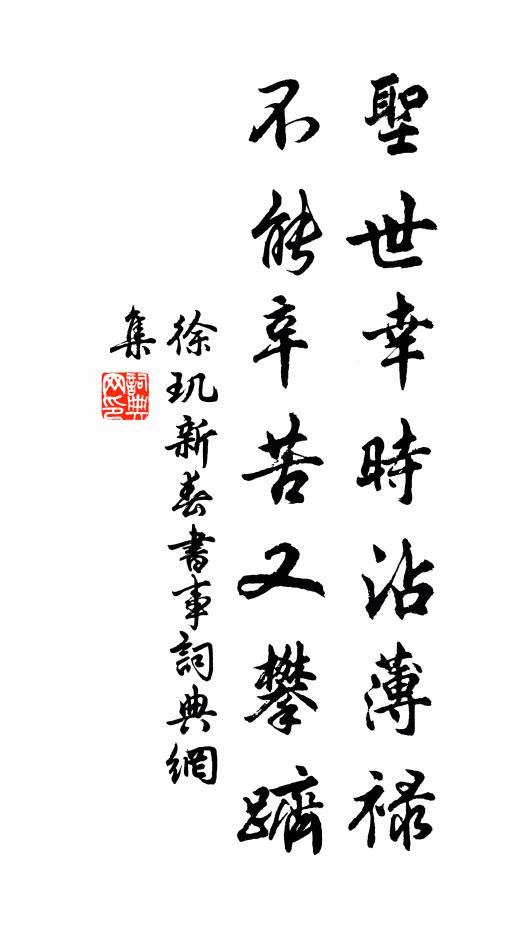 聖世幸時沾薄祿
不能辛苦又攀躋
徐璣新春書事詞典網
集
詞典
网印